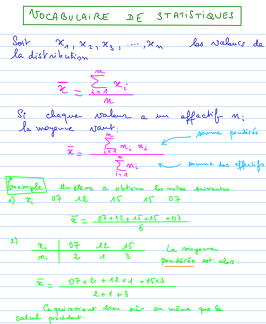 VOCABULAIRE DE STATISTIQUES
Soit x₁, x₂, x₃, ..., xₙ les valeurs de
la distribution
x̄ = ∑ᵢ₌₁ⁿ xᵢ / n
Si chaque valeur a un effectif nᵢ
la moyenne vaut :
somme pondérée
x̄ = ∑ᵢ₌₁ⁿ nᵢ xᵢ / ∑ᵢ₌₁ⁿ nᵢ
somme des effectifs
Exemple Un élève a obtenu les notes suivantes :
1) xᵢ 07 12 15 15 07
x̄ = 07+12+15+15+07 / 6
2) xᵢ 07 12 15 La moyenne
nᵢ 2 1 3 pondérée est alors :
x̄ = 07×2 + 12×1 + 15×3 / 2+1+3
Ce qui revient bien sûr au même que le
calcul précédent.